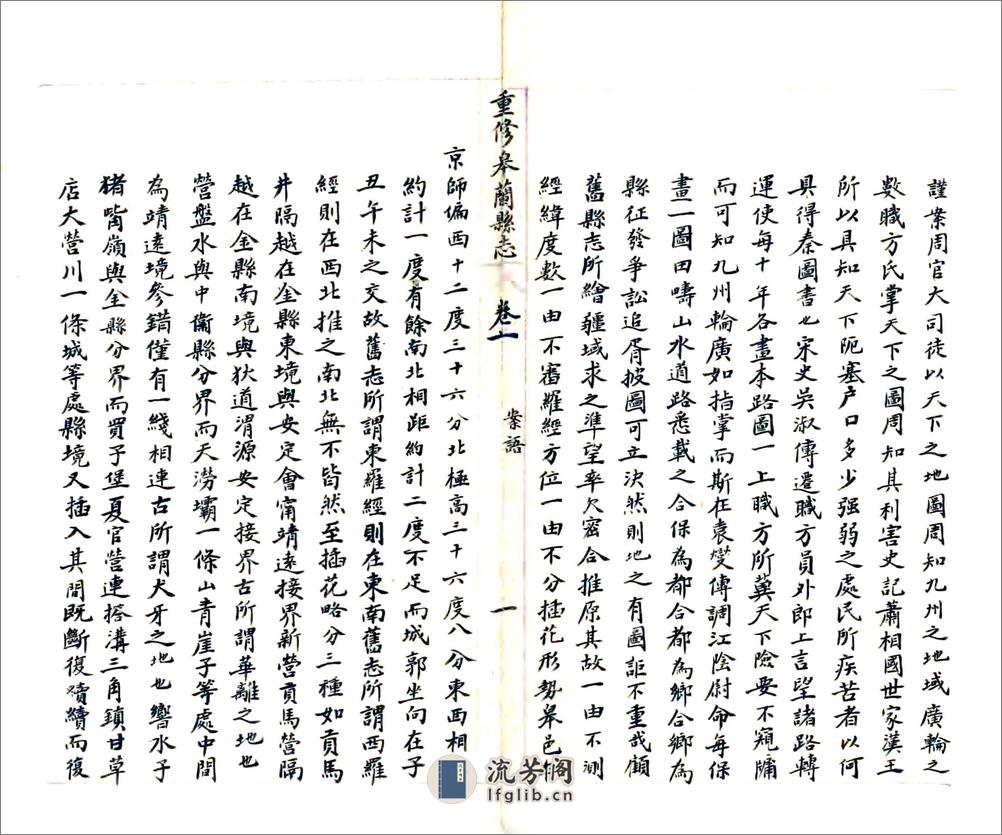 謹案周官大司徒以天下之地圖周知九州之地域廣輪之
數職方氏掌天下之圖周知其利害史記蕭相國世家漢王
所以具知天下阨塞户口多少强弱之處民所疾苦者以何
具得秦圖書也宋史吳淑傳遷職方員外郎上言望諸路轉
運使每十年各畫本路圖一上職方所冀天下險要不窺牖
而可知九州輪廣如指掌而斯在袁燮傳調江陰尉命每保
畫一圖田疇山水道路悉載之合保為都合都為鄉合鄉為
縣征發爭訟追胥披圖可立決然則地之有圖詎不重哉顧
舊縣志所繪疆域求之準望率欠密合推原其故一由不測
經緯度數一由不審羅經方位一由不分插花形勢皋邑
重修皋蘭縣志 卷一 案語 一
京師偏西十二度三十六分北極高三十六度八分東西相
約計一度有餘南北相距約計二度不足而城郭坐向在子
丑午未之交故舊志所謂東羅經則在東南舊志所謂西羅
經則在西北推之南北無不皆然至插花略分三種如貢馬
井隔越在金縣東境與安定會甯靖遠接界新營貢馬營隔
越在金縣南境與狄道渭源安定接界古所謂華離之地也
營盤水與中衛縣分界而天澇壩一條山青崖子等處中間
為靖遠境參錯僅有一綫相連古所謂犬牙之地也響水子
猪嘴嶺與金縣分界而買子堡夏官營連搭溝三角鎮甘草
店大營川一條城等處縣境又插入其間既斷復續續而復
流芳阁
lfglib.cn